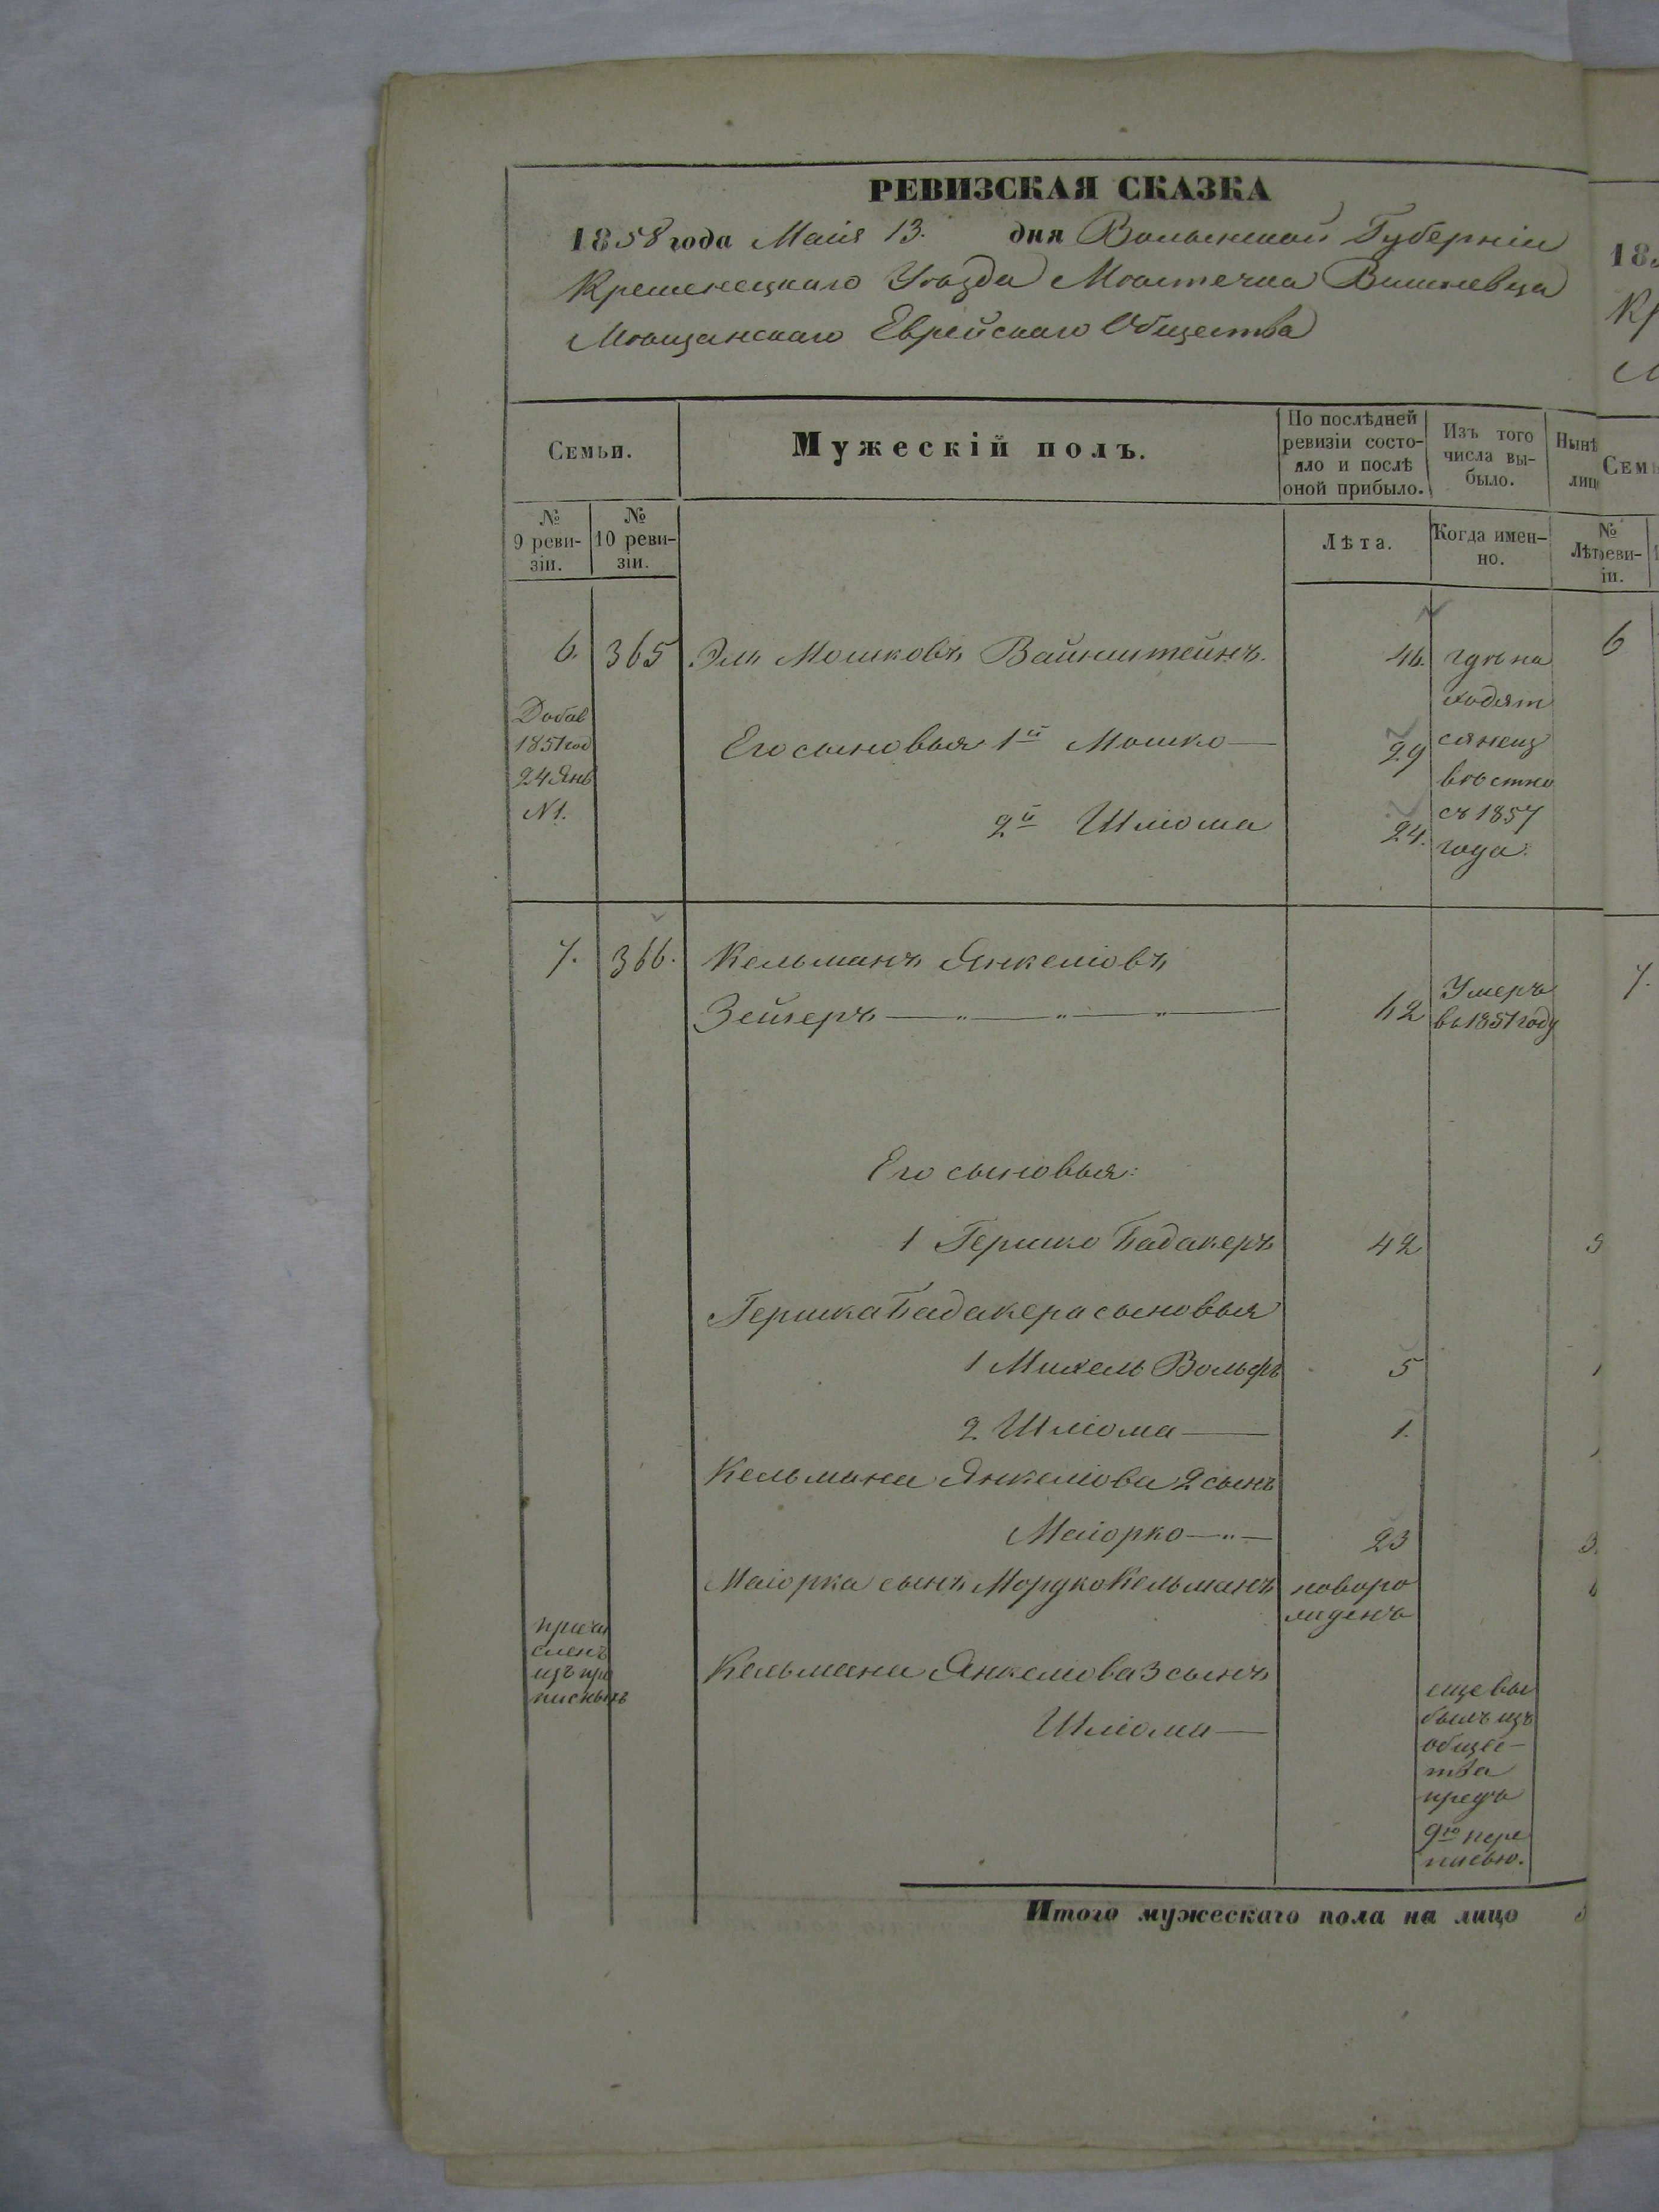 РЕВИЗСКАЯ СКАЗКА
1858 года Маія 13. дня Волынской Губерніи
Кременецкаго Уѣзда Мѣстечка Вишневца
Мѣщанскаго Еврейскаго Общества
Семьи.
Мужескій полъ.
По послѣдней
ревизіи состо-
яло и послѣ
оной прибыло.
Изъ того
числа вы-
было.
Нынѣ
лиц
№
9 реви-
зіи.
№
10 реви-
зіи.
Лѣта.
Когда имен-
но.
Лѣт
6. 365 Эль Мошковъ Вайнштейнъ. 46.
Добав
1851 год
24 Янв
№ 1.
Его сыновья 1й Мошко — 29
2й Шліома 24.
гдѣ на
ходят
ся неиз
вѣстно
съ 1857
года.
7. 366. Кельманъ Янкеліовъ
Зейгеръ — „ — „ — „ — 62
Умеръ
въ 1851 году
Его сыновья:
1 Гершко Бадакеръ 42
Гершка Бадакера сыновья
1 Михель Вольфъ 5
2 Шліома — 1.
Кельмана Янкеліова 2 сынъ
Маіорко — „ — 23
Маіорка сынъ Мордко Кельманъ новоро
жденъ
причи
сленъ
изъ про
писныхъ
Кельмана Янкеліова 3 сынъ
Шліома —
еще вы
былъ изъ
общес-
тва
предъ
9ю пере
писью.
Итого мужескаго пола на лицо
185
Кр
М
Сем
№
реви-
іи.
6
7.